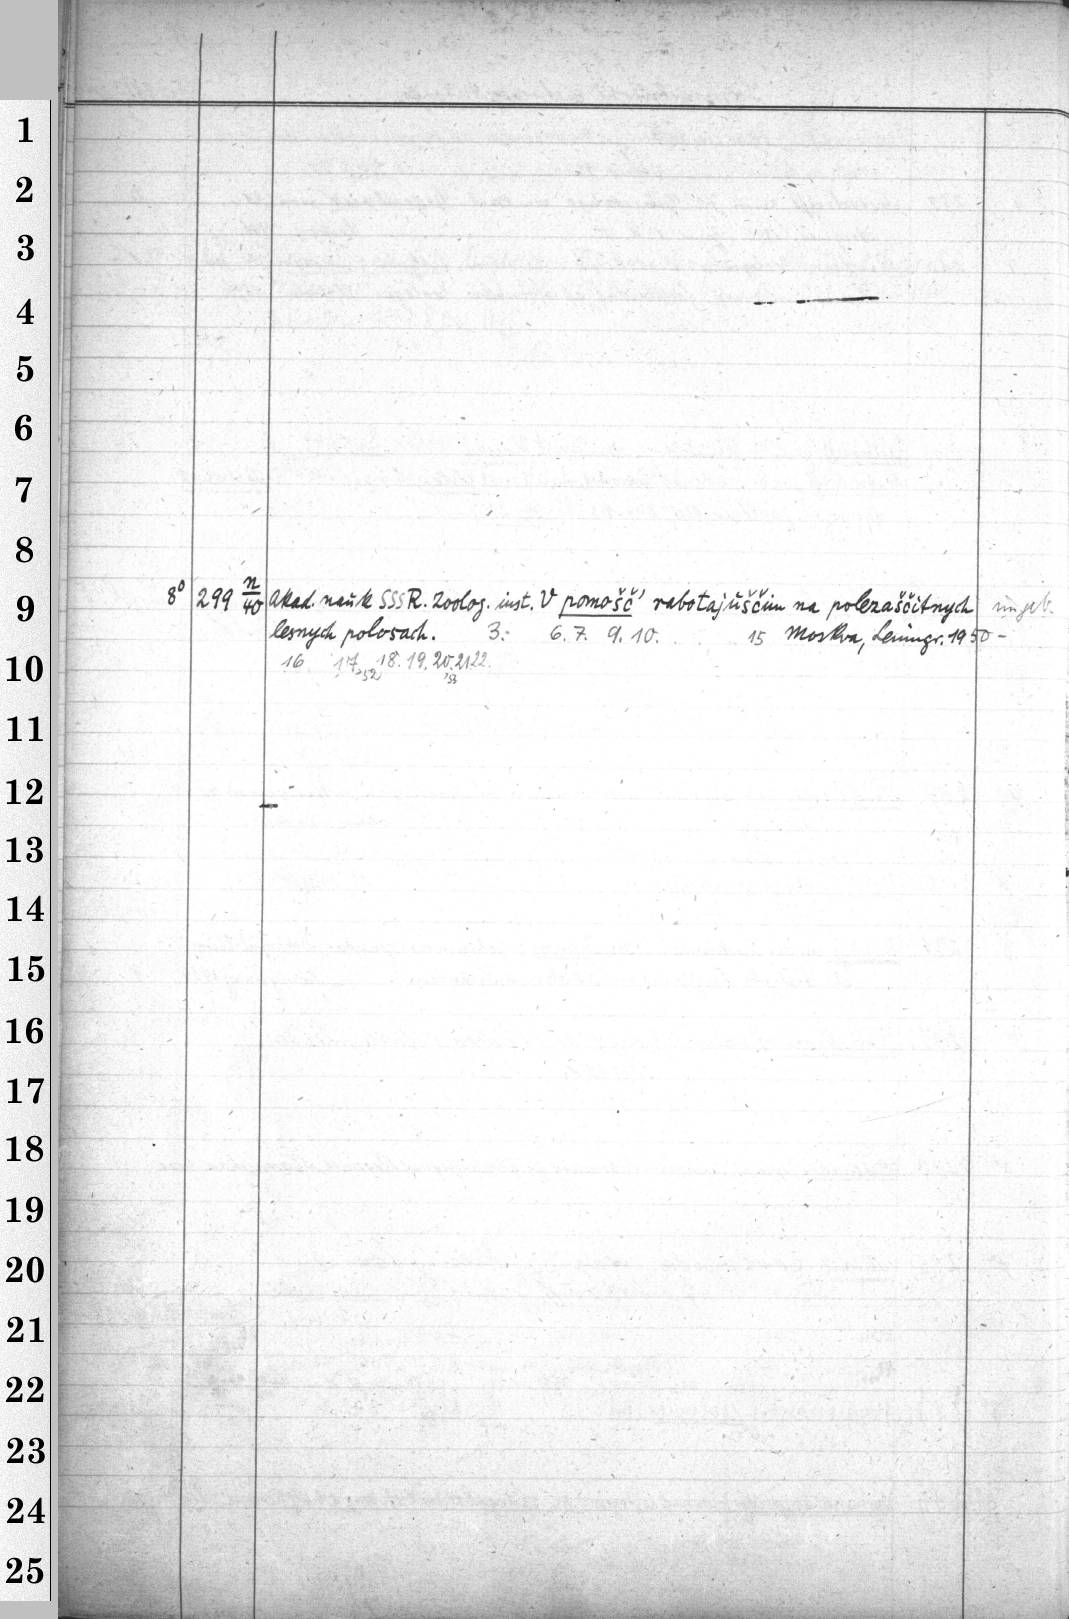 1
2
3
4
5
6
7
8
8° 299 n/40 Akad. nauk SSSR. Zoolog. inst. V pomošč' rabotajuščim na polezaščitnych ungeb.
9
lesnych polosach. 3. 6. 7. 9. 10. 15 Moskva, Leningr. 1950-
10
16 17 52 18. 19. 20. 21 22. '53
11
12
13
14
15
16
17
18
19
20
21
22
23
24
25